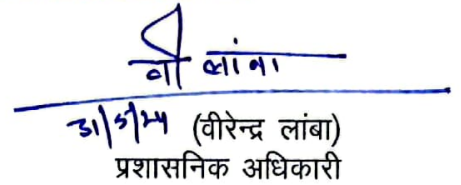 वी लांबा
31/5/24 (वीरेन्द्र लांबा)
प्रशासनिक अधिकारी